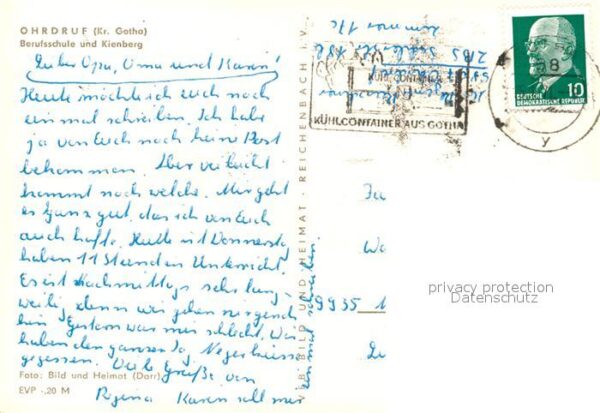 OHRDRUF (Kr. Gotha)
Berufsschule und Kienberg
Lieber Opa, Oma und Karin!
Heute möchte ich euch noch
einmal schreiben. Ich habe
ja von Euch noch keine Post
bekommen. Aber vielleicht
kommt noch welche. Mir geht
es ganz gut, das ich von Euch
auch hoffe. Heute ist Donnerstag
haben 11 Stunden Unterricht.
Es ist Nachmittags sehr lang-
weilig, denn wir gehen nirgends
hin. Gestern war mir schlecht. Wir
haben den ganzen Tag Negerküsse
gegessen. Viele Grüße von
Regina Karin soll mir
einmal schreiben
Foto: Bild und Heimat (Darr)
EVP -,20 M
VEB BILD UND HEIMAT · REICHENBACH I. V.
KÜHLCONTAINER AUS GOTHA
Zimmer 17c
DEUTSCHE
DEMOKRATISCHE REPUBLIK
10
Fa
9935
privacy protection
Datenschutz